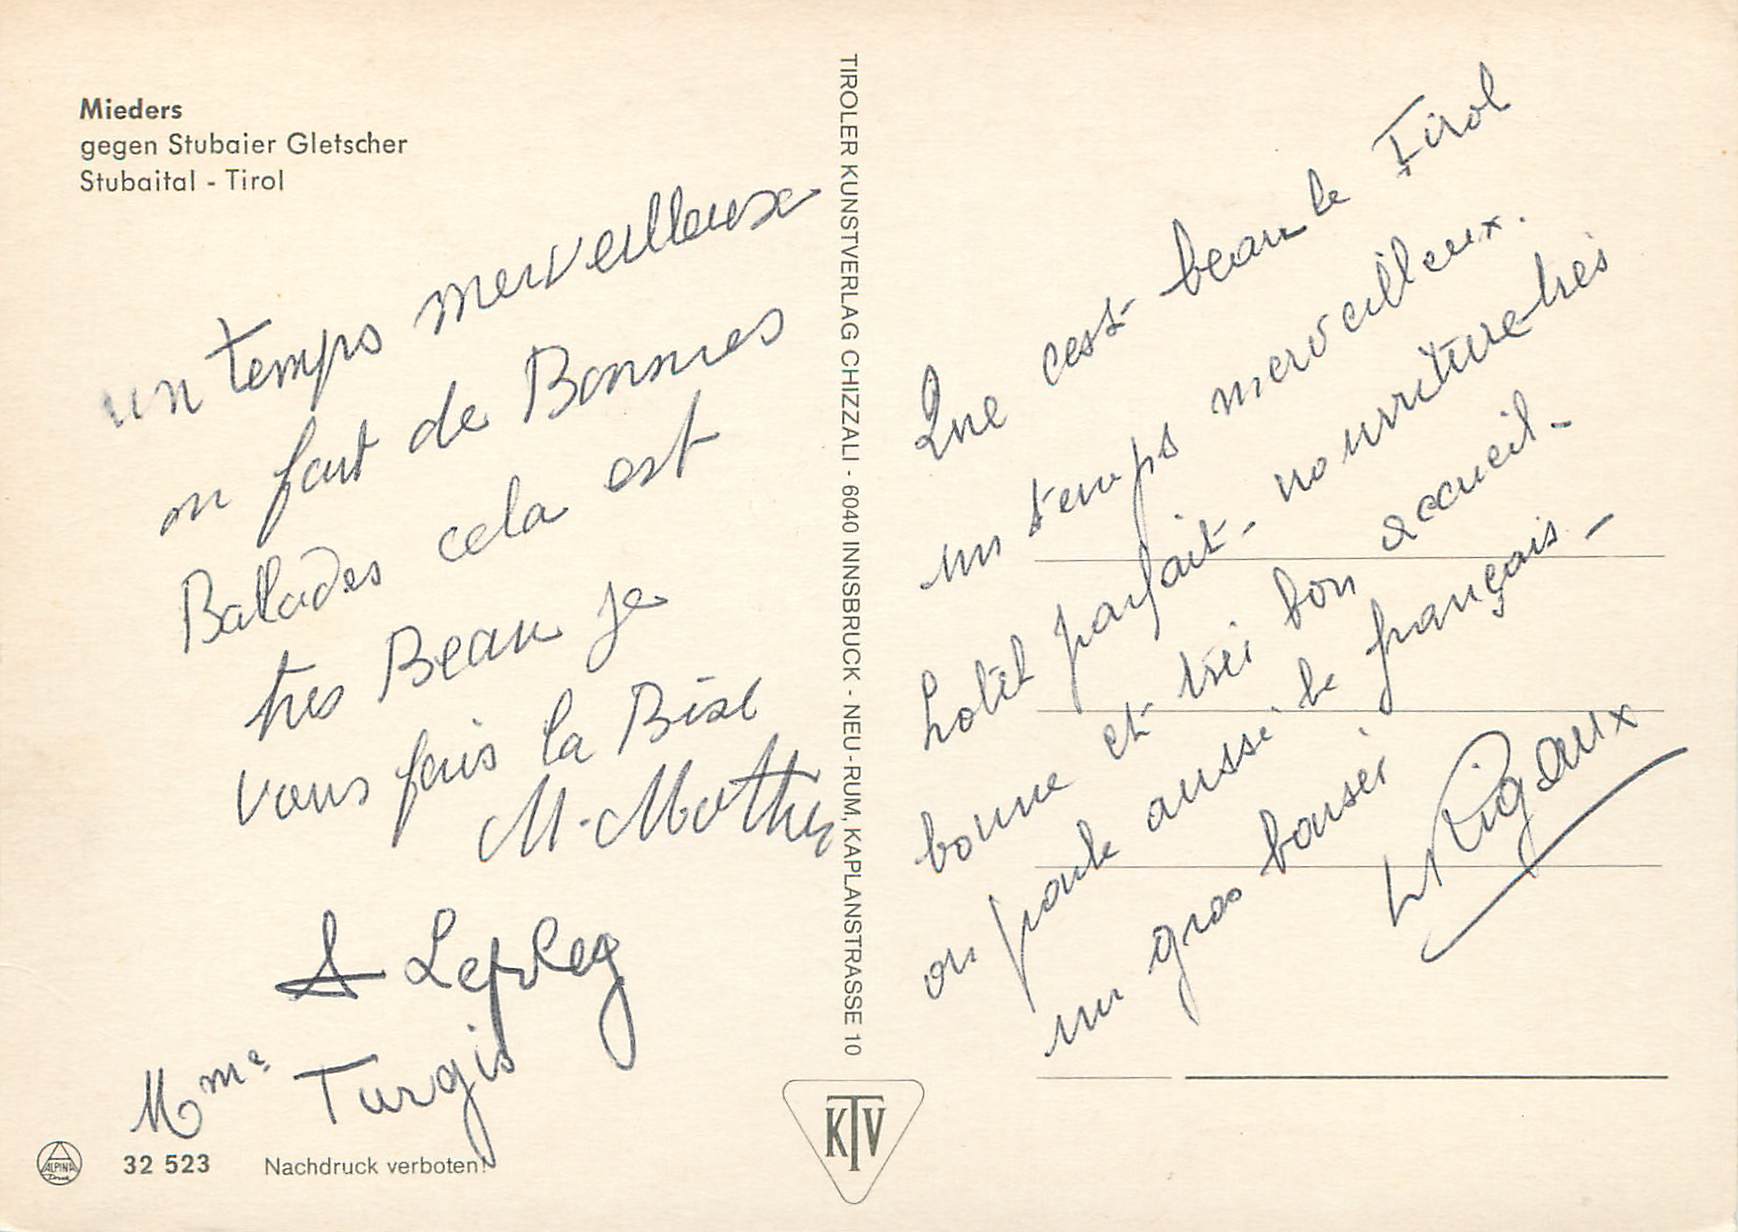 Mieders
gegen Stubaier Gletscher
Stubaital - Tirol
un temps merveilleux
on fait de Bonnes
Balades cela est
tres Beau je
vous fais la Bise
M. Mathey
Lepleg
Mme Turgis
ALPINA
Druck
32 523 Nachdruck verboten!
TIROLER KUNSTVERLAG CHIZZALI - 6040 INNSBRUCK - NEU-RUM, KAPLANSTRASSE 10
KTV
Que cest beau le Tirol
un temps merveilleux.
hotel parfait - nourriture très
bonne et très bon accueil -
on parle aussi le français. -
un gros baiser
Rigaux